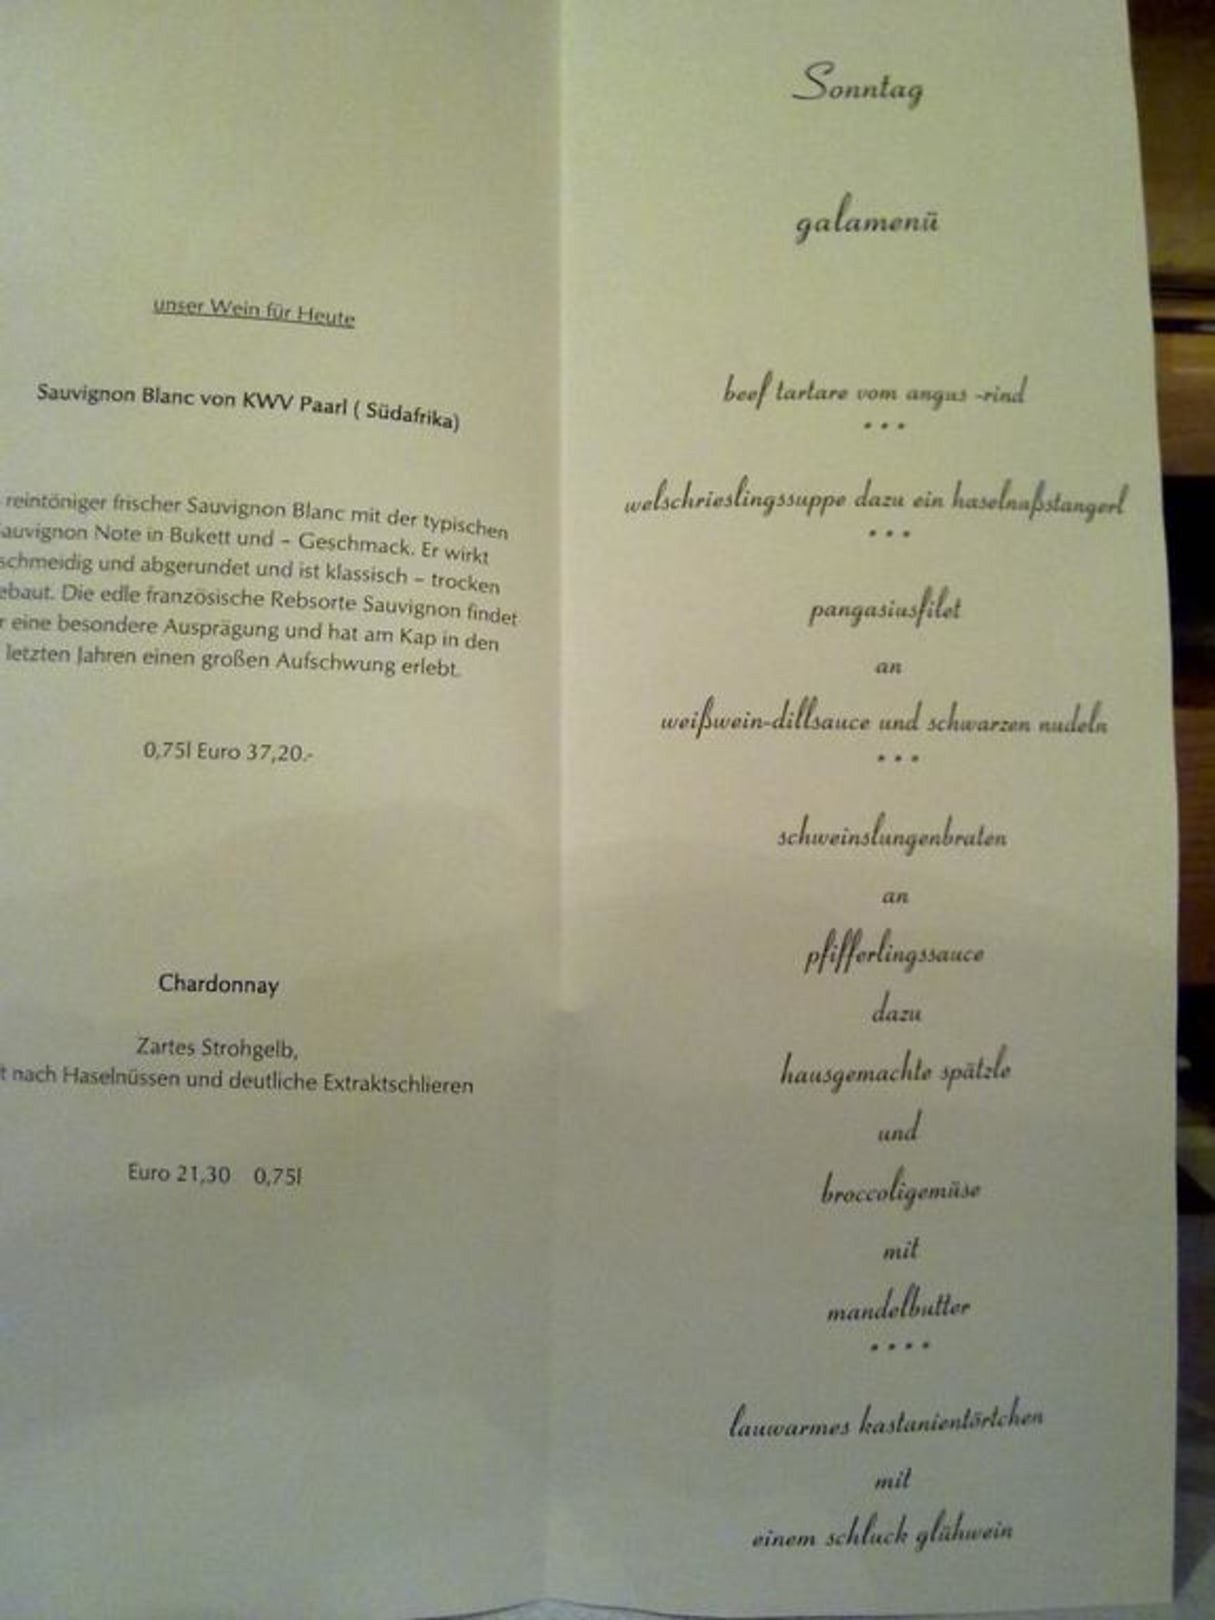 unser Wein für Heute
Sauvignon Blanc von KWV Paarl ( Südafrika)
reintöniger frischer Sauvignon Blanc mit der typischen
auvignon Note in Bukett und – Geschmack. Er wirkt
schmeidig und abgerundet und ist klassisch – trocken
ebaut. Die edle französische Rebsorte Sauvignon findet
r eine besondere Ausprägung und hat am Kap in den
letzten Jahren einen großen Aufschwung erlebt.
0,75l Euro 37,20.-
Chardonnay
Zartes Strohgelb,
t nach Haselnüssen und deutliche Extraktschlieren
Euro 21,30 0,75l
Sonntag
galamenü
beef tartare vom angus -rind
***
welschrieslingssuppe dazu ein haselnußstangerl
***
pangasiusfilet
an
weißwein-dillsauce und schwarzen nudeln
***
schweinslungenbraten
an
pfifferlingssauce
dazu
hausgemachte spätzle
und
broccoligemüse
mit
mandelbutter
****
lauwarmes kastanientörtchen
mit
einem schluck glühwein